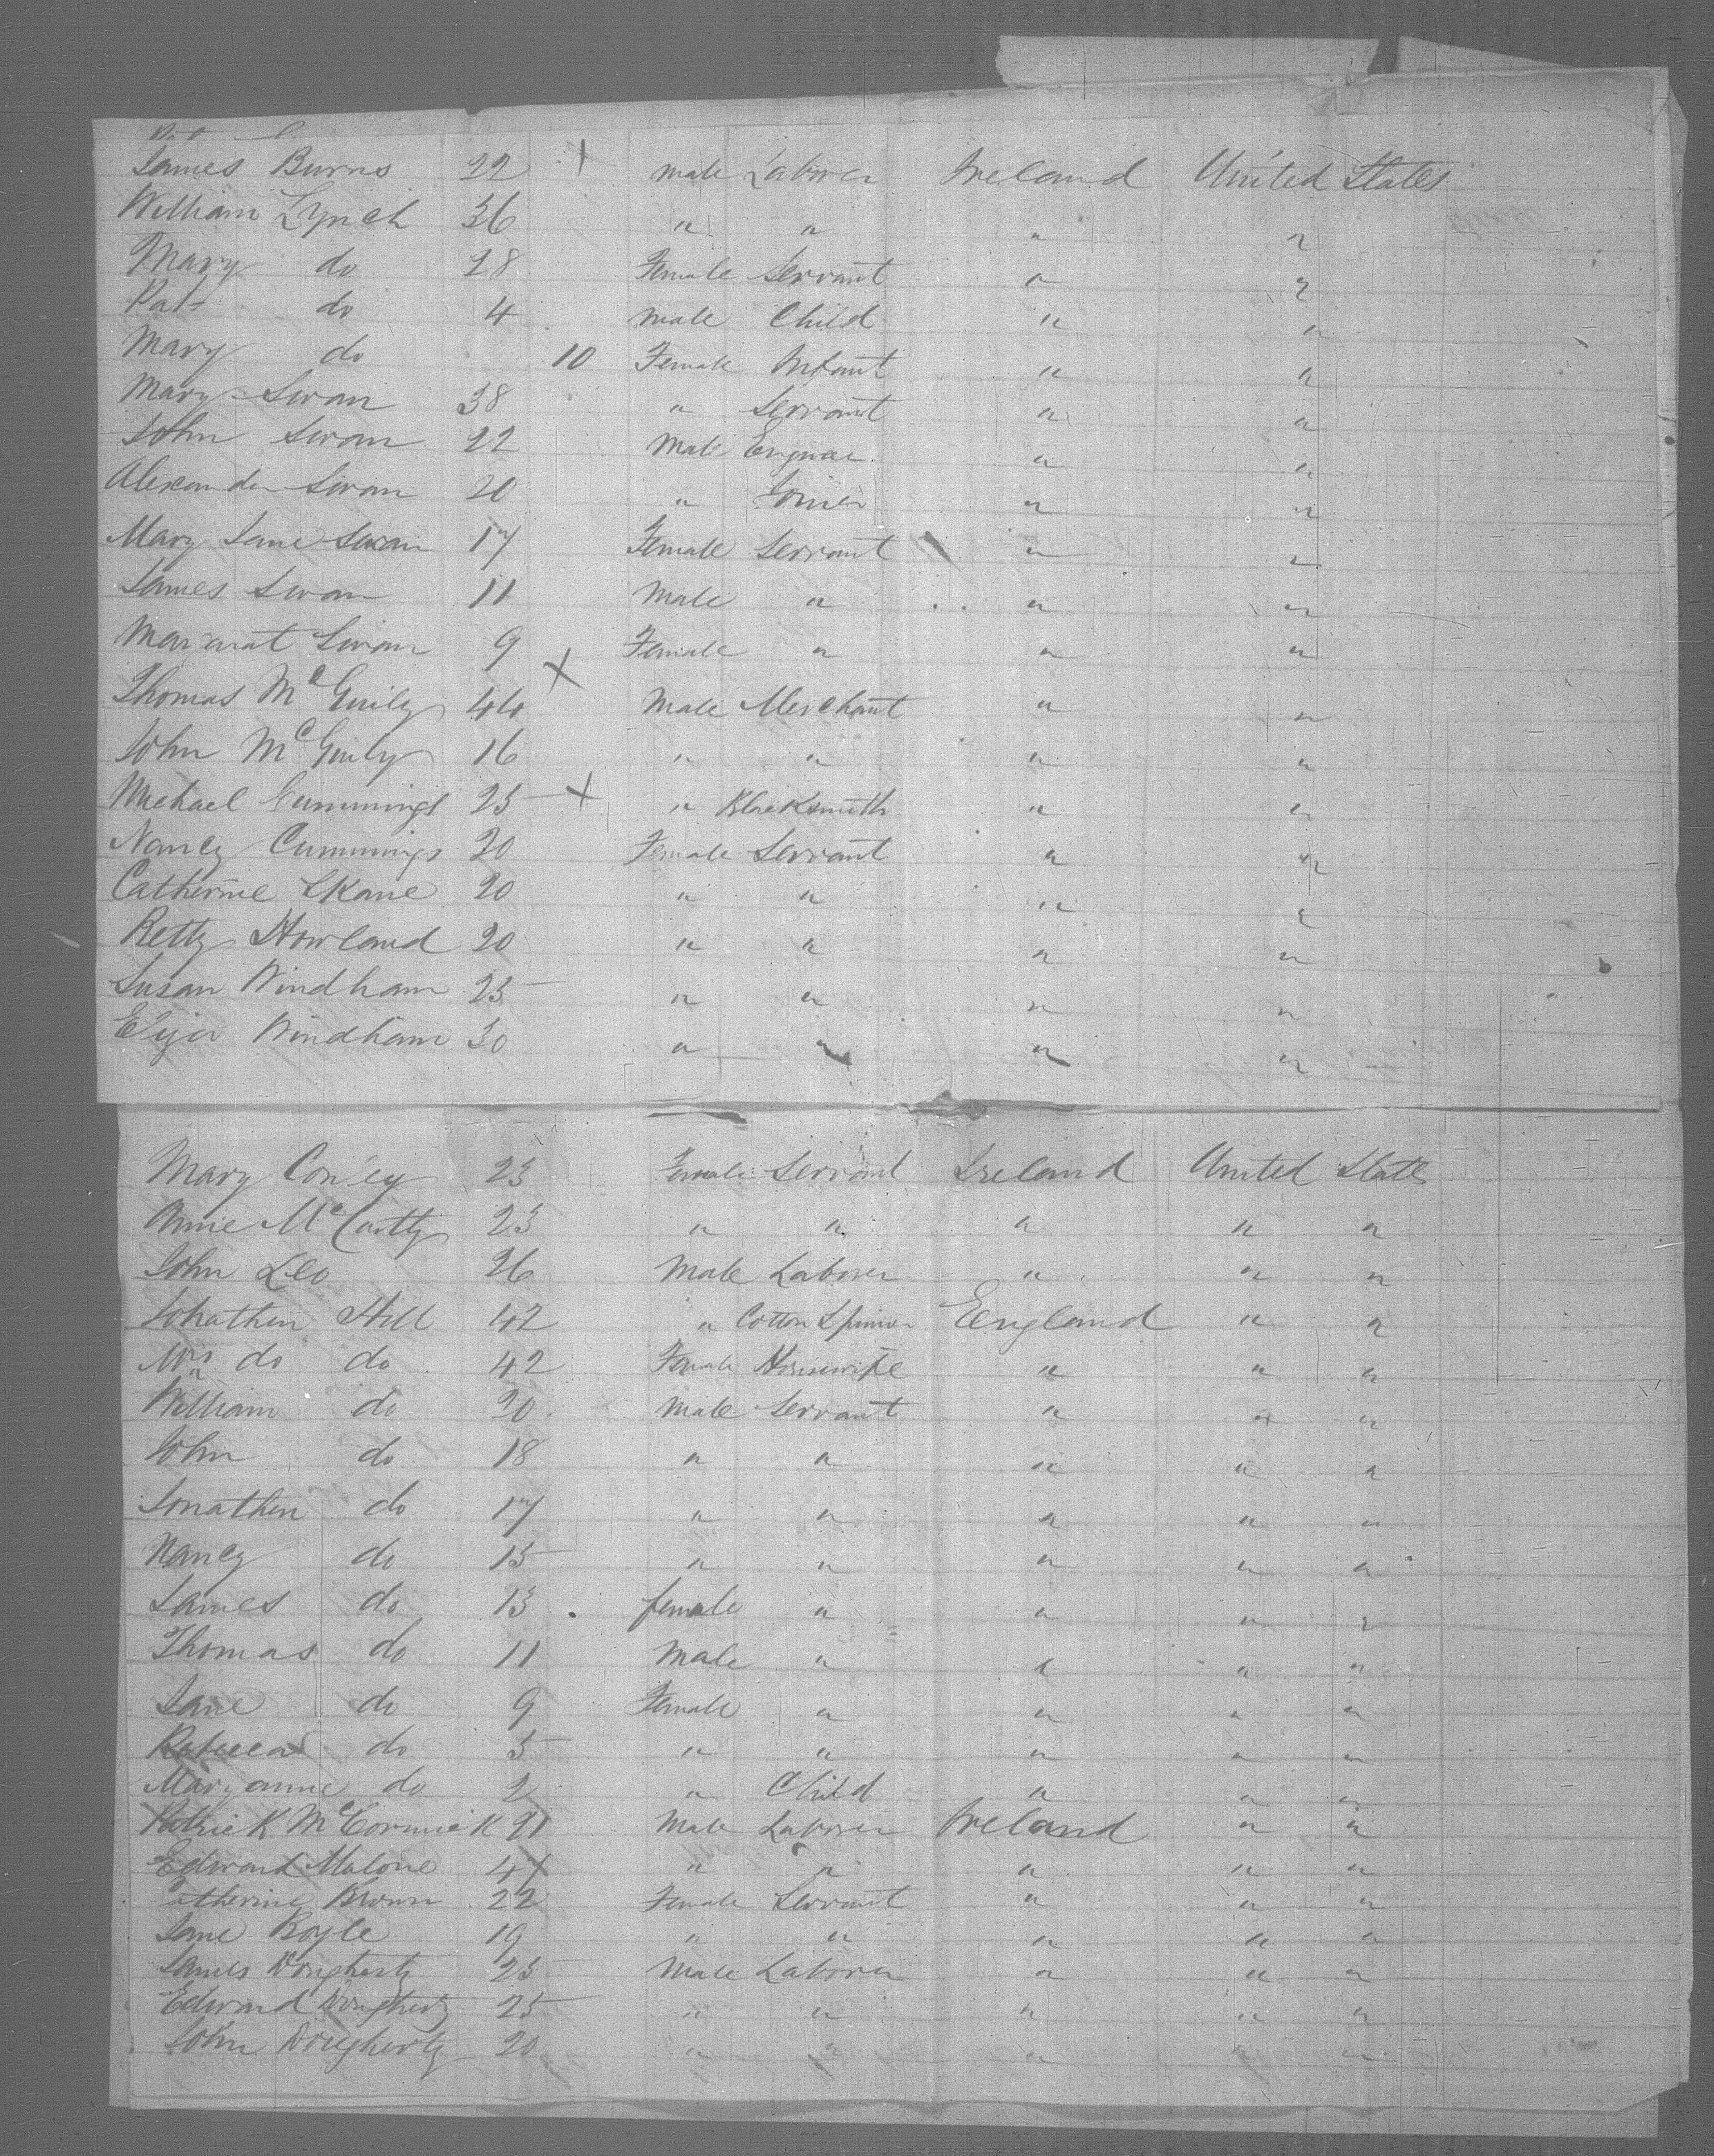 James Burns 22 + male Laborer Ireland United States
William Lynch 36 " " " "
Mary do 28 Female Servant " "
Pat do 4 male Child " "
Mary do 10 Female Infant " "
Mary Swan 38 " Servant " "
John Swan 22 Male " "
Alexander Swan 20 " Joiner " "
Mary Jane Swan 17 Female Servant " "
James Swan 11 Male " " "
Swan 9 Female " " "
Thomas McGuily 44 X Male Merchant " "
John McGuily 16 " " " "
Michael Cummings 25 X " Blacksmith " "
Nancy Cummings 20 Female Servant " "
Catherine 20 " " " "
Betty Howland 20 " " " "
Susan Windham 25 " " " "
Eliza Windham 30 " " " "
Mary Conley 23 Female Servant Ireland United States
Annie McCartty 23 " " " " "
John Leo 26 Male Laborer " " "
Johathen Hill 42 " Cotton Spinner England " "
Mrs do do 42 Female Housewife " " "
William do 20 male Servant " " "
John do 18 " " " " "
Jonathen do 17 " " " " "
Nancy do 15 " " " " "
James do 13 female " " " "
Thomas do 11 Male " " " "
Jane do 9 Female " " " "
Rebecca do 5 " " " " "
Maryanne do 2 " Child " " "
Patrick McCormick 21 Male Laborer Ireland " "
Edward Malone 47 " " " " "
atherine Brown 22 Female Servant " " "
Jane Boyle 19 " " " " "
James Dougherty 25 Male Laborer " " "
Edward Dougherty 25 " " " " "
John Dougherty 20 " " " " "